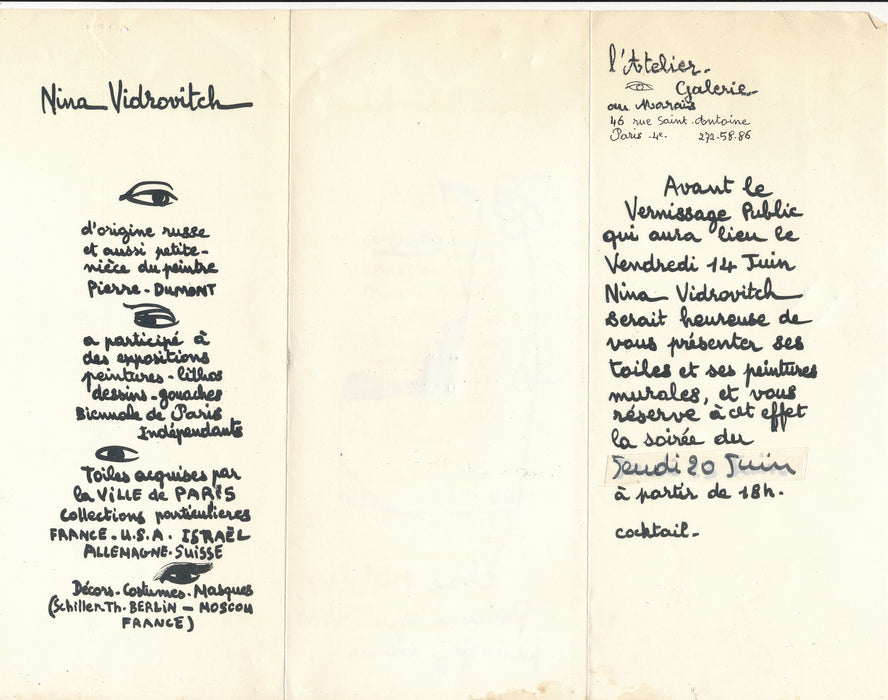 Nina Vidrovitch
d'origine russe
et aussi petite-
nièce du peintre
Pierre-DUMONT
a participé à
des expositions
peintures-lithos
dessins-gouaches
Biennale de Paris
Indépendants
Toiles acquises par
la VILLE de PARIS
Collections particulieres
FRANCE.U.S.A. ISRAËL
ALLEMAGNE.SUISSE
Décors.Costumes.Masques
(Schiller.Th. BERLIN - MOSCOU
FRANCE)
l'Atelier-
Galerie-
au Marais
46 rue Saint-Antoine
Paris -4e. 272-58-86
Avant le
Vernissage Public
qui aura lieu le
Vendredi 14 Juin
Nina Vidrovitch
serait heureuse de
vous présenter ses
toiles et ses peintures
murales, et vous
réserve à cet effet
la soirée du
Jeudi 20 Juin
à partir de 18h.
cocktail-